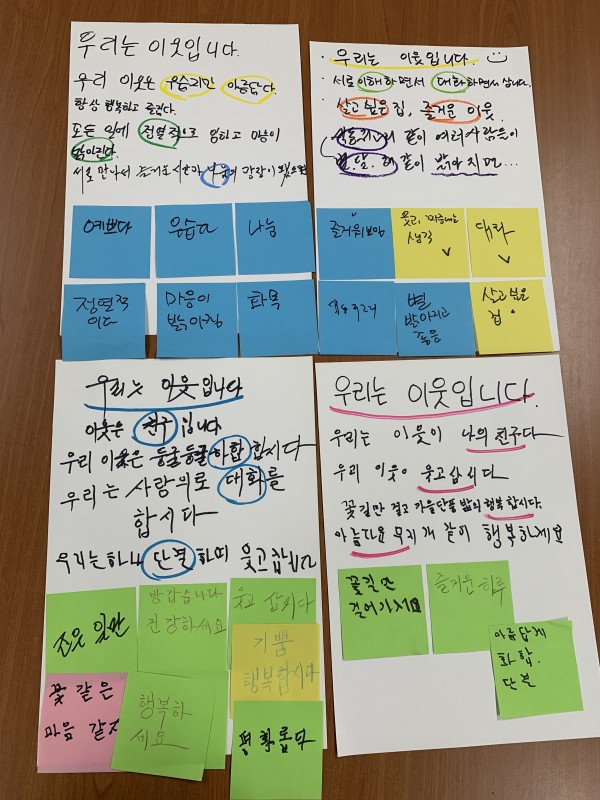 우리는 이웃입니다.
우리 이웃은 웃습지만 아름답다.
항상 행복하고 즐겁다.
모든 일에 정열적으로 임하고 마음이
밝아진다.
서로 만나서 즐거운시간과 나눔의 강강이 필요
예쁘다
웃습다
나눔
정열적
이다
마음이
밝아짐
화목
우리는 이웃입니다.
서로 이해하면서 대화하면서 삽니다.
살고싶은 집, 즐거운 이웃.
색동저고리 같이 여러사람들이
별, 달, 해 같이 밝아지면...
즐거워보임
웃고, 떠드는
생각
대화
색동저고리
별
밝아지고
좋음
살고싶은
집
우리는 이웃입니다
이웃은 친구입니다
우리 이웃은 둥글둥글 화합합시다
우리는 사랑의로 대화를
합시다
우리는하나 단결하며 웃고삽니다
조은 일만
방갑습니다
건강하세요
웃고 삽시다
기쁨
행복합시다
꽃 같은
마음 같자
행복하
세요
평화롭다
우리는 이웃입니다.
우리는 이웃이 나의친구다
우리 이웃 웃고삽시다
꽃길만 걷고 가을단풍 밟이 행복합시다.
아름다운 무지개 같이 행복하세요
꽃길만
걸어가세요
즐거운하루
아름답게
화합.
단결